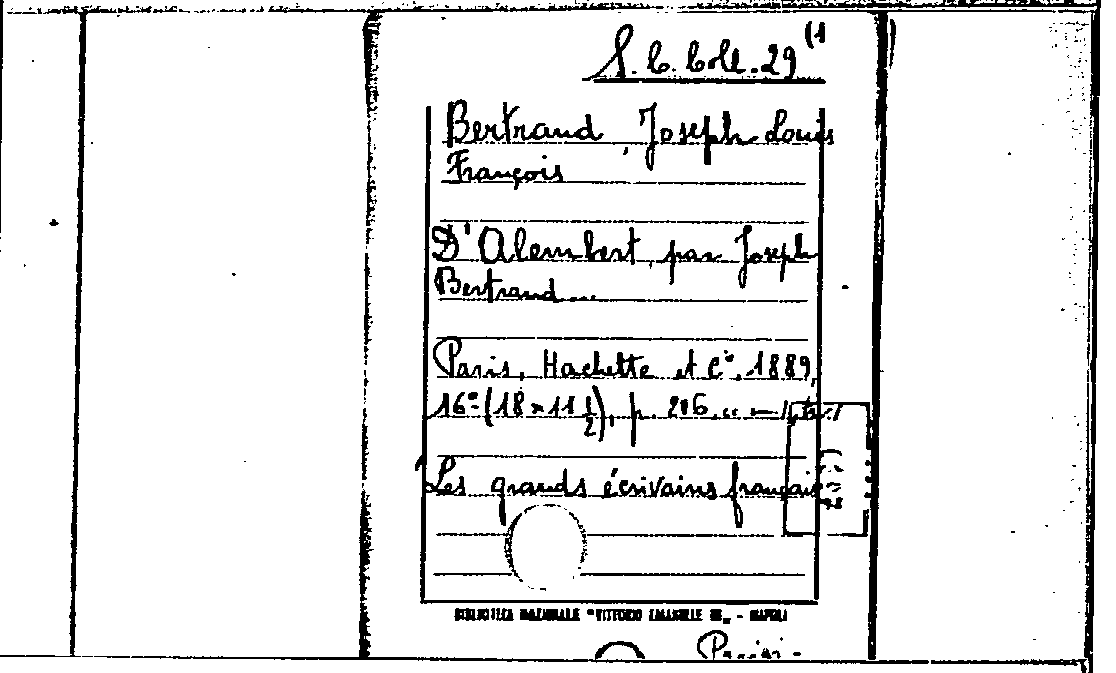 S. C. Coll. 29 (1
Bertrand, Joseph Louis
François
D'Alembert, par Joseph
Bertrand...
Paris, Hachette et Cie, 1889,
16° (18 × 11 1/2), p. 206.
(Les grands écrivains français
BIBLIOTECA NAZIONALE "VITTORIO EMANUELE III" - NAPOLI